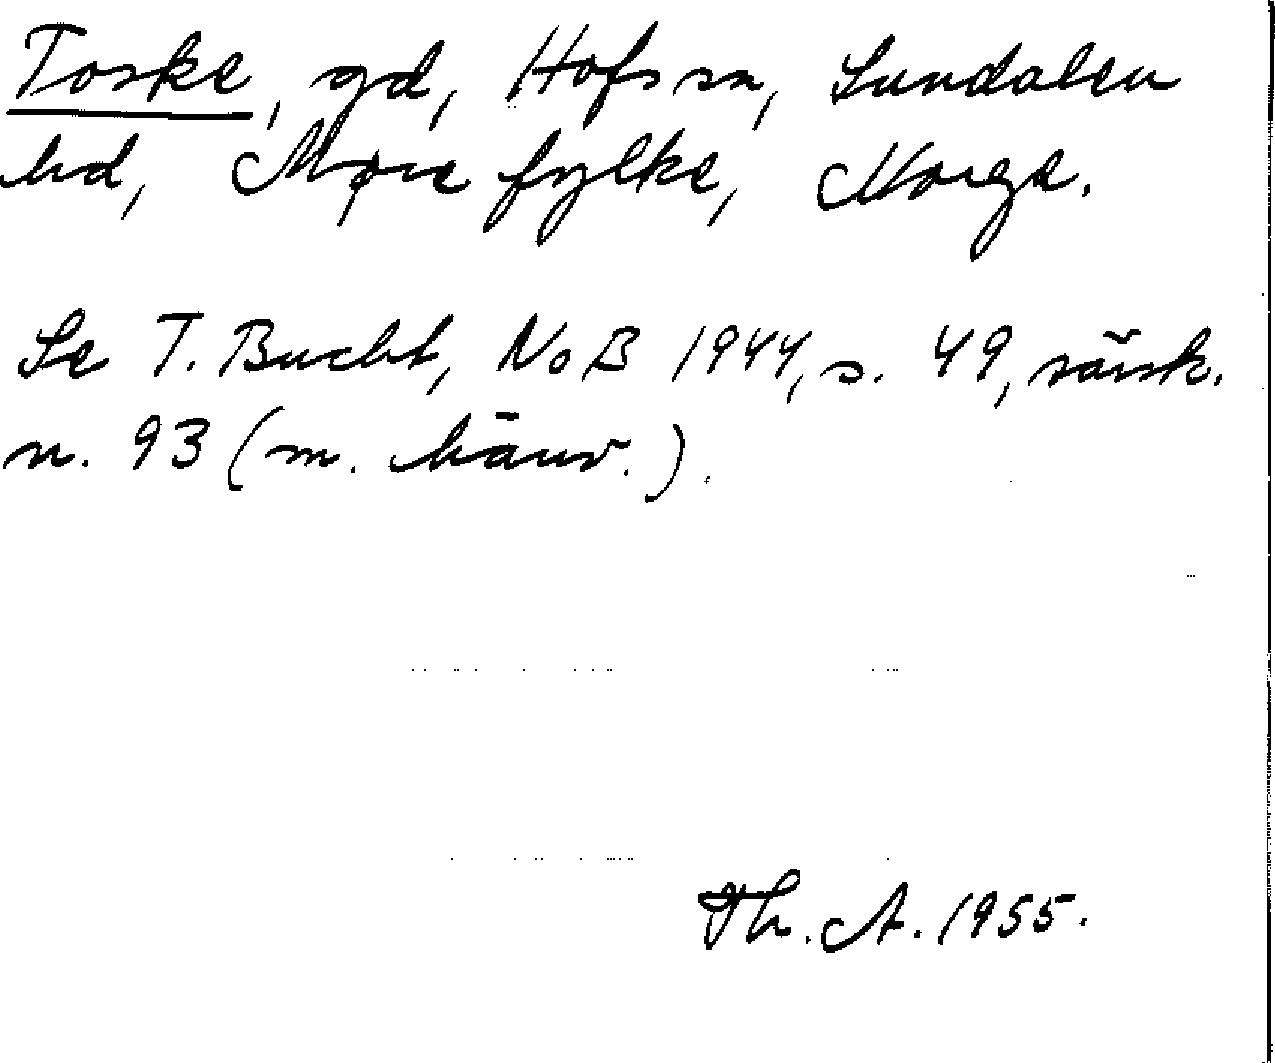 Toske, gd, Hofs sn, Sundalen
hd, Møre fylke, Norge.
Se T. Bucht, NoB 1944, s. 49, särsk.
n. 93 (m. hänv.).
Th. A. 1955.